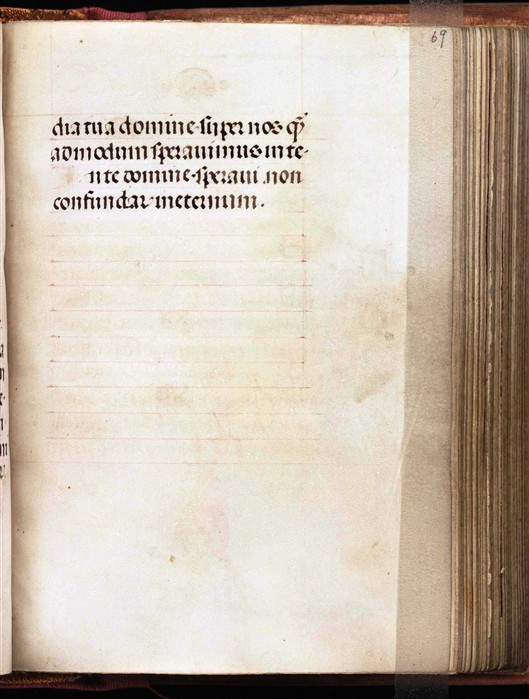 69
dia tua domine super nos q̄
admodum sperauimus in te·
nte domine speraui non
confundar ineternum.